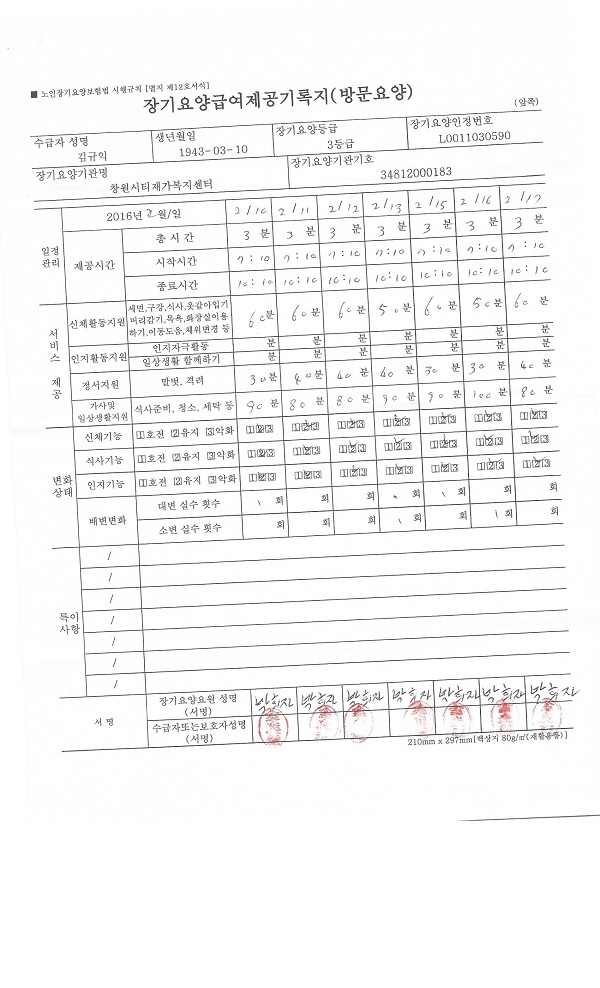 ■ 노인장기요양보험법 시행규칙 [별지 제12호서식]
장기요양급여제공기록지(방문요양)
(앞쪽)
수급자 성명 생년월일 장기요양등급 장기요양인정번호
김규익 1943-03-10 3등급 L0011030590
장기요양기관명 장기요양기관기호
창원시티재가복지센터 34812000183
일정관리 2016년 2월/일 2/10 2/11 2/12 2/13 2/15 2/16 2/17
제공시간 총 시 간 3 분 3 분 3 분 3 분 3 분 3 분 3 분
시작시간 7:10 7:10 7:10 7:10 7:10 7:10 7:10
종료시간 10:10 10:10 10:10 10:10 10:10 10:10 10:10
서비스 제공
신체활동지원 세면,구강,식사,옷갈아입기
머리감기,목욕,화장실이용
하기,이동도움,체위변경 등
60분 60분 60분 50분 60분 50분 60분
인지활동지원 인지자극활동 분 분 분 분 분 분 분
일상생활 함께하기 분 분 분 분 분 분 분
정서지원 말벗, 격려 30분 40분 40분 40분 30분 30분 40분
가사및
일상생활지원 식사준비, 청소, 세탁 등 90분 80분 80분 90분 90분 100분 80분
변화상태
신체기능 1호전 2유지 3악화 123 123 123 123 123 123 123
식사기능 1호전 2유지 3악화 123 123 123 123 123 123 123
인지기능 1호전 2유지 3악화 123 123 123 123 123 123 123
배변변화 대변 실수 횟수 1회 회 회 회 1회 회 회
소변 실수 횟수 회 회 회 회 회 1회 회
특이사항
/
/
/
/
/
/
/
서 명
장기요양요원 성명
(서명)
박희자 박희자 박희자 박희자 박희자 박희자 박희자
수급자또는보호자성명
(서명)
210mm x 297mm[백상지 80g/㎡(재활용품)]